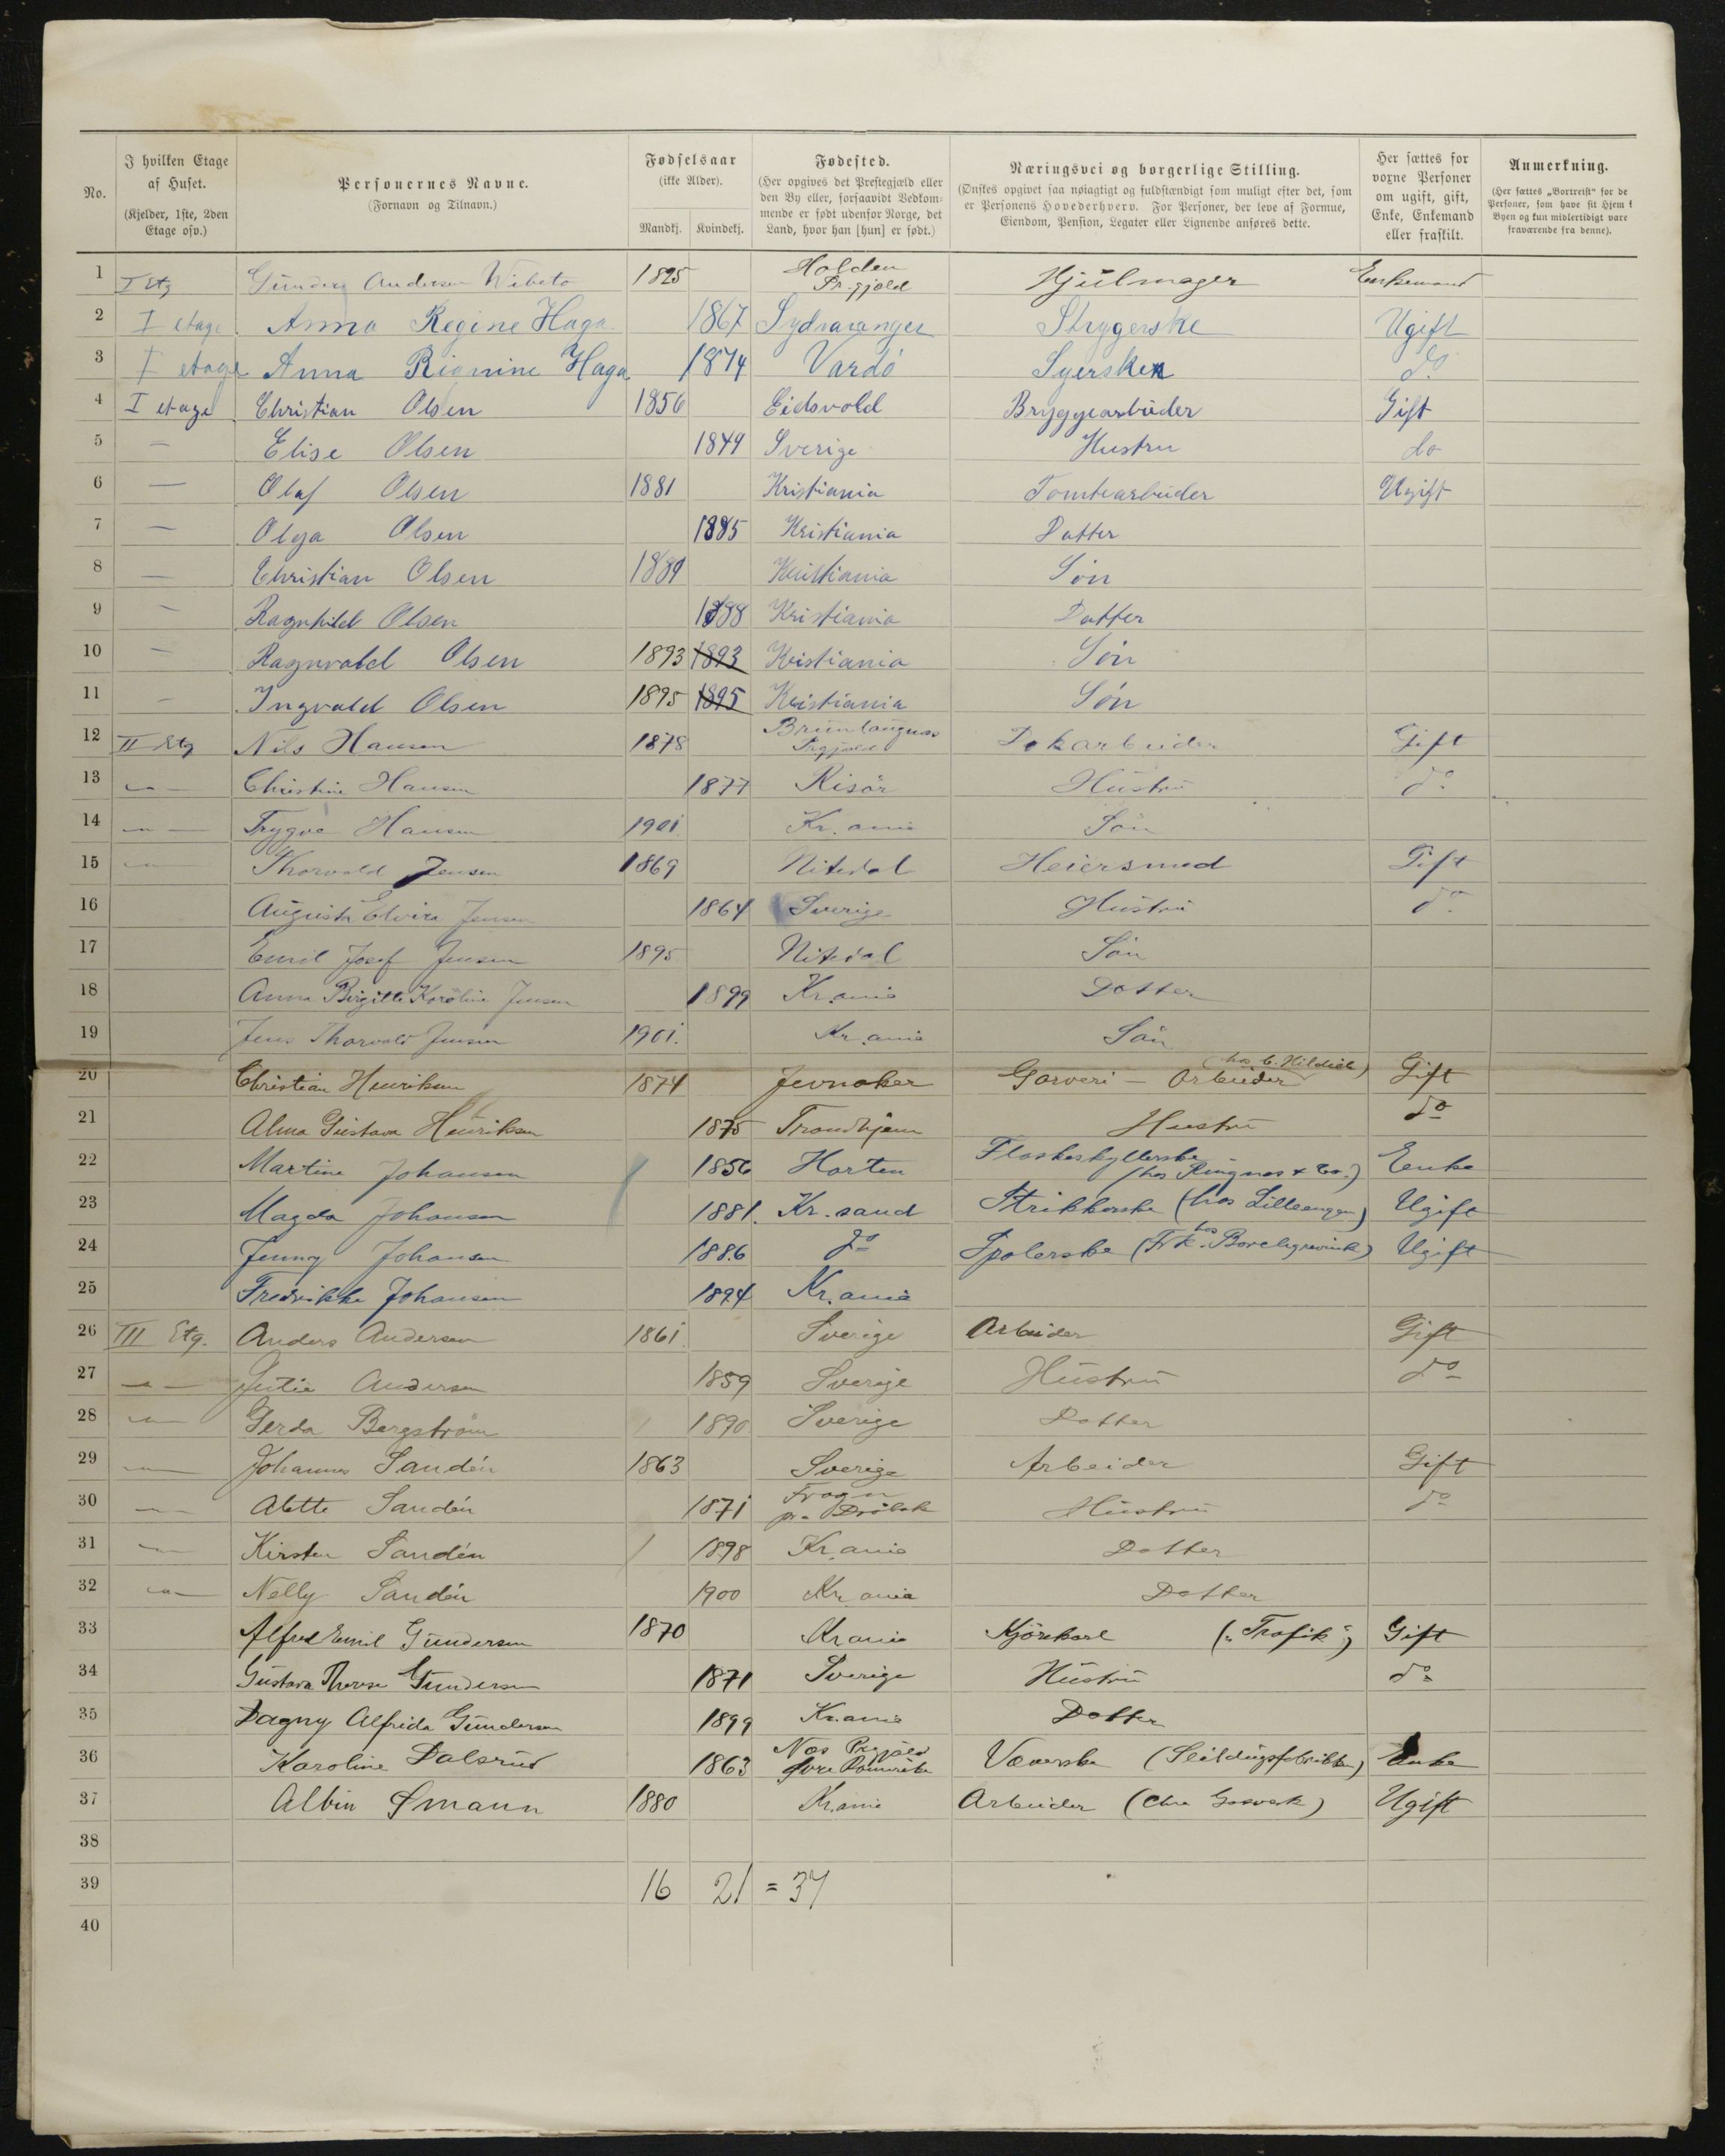 No. | I hvilken Etage af Huset. (Kjelder, 1ste, 2den Etage osv.) | Personernes Navne. (Fornavn og Tilnavn.) | Fødselsaar (ikke Alder). Mandkj. | Kvindekj. | Fødested. (Her opgives det Prestegjæld eller den By eller, forsaavidt Vedkommende er født udenfor Norge, det Land, hvor han [hun] er født.) | Næringsvei og borgerlige Stilling. (Ønskes opgivet saa nøiagtigt og fuldstændigt som muligt efter det, som er Personens Hovederhverv. For Personer, der leve af Formue, Eiendom, Pension, Legater eller Lignende anføres dette. | Her sættes for voxne Personer om ugift, gift, Enke, Enkemand eller fraskilt. | Anmerkning. (Her sættes „Bortreist" for de Personer, som have sit Hjem i Byen og kun midlertidigt vare fraværende fra denne).
1 I Etg Gunder Andersen Wibeto 1825 Holden Pr.gjæld Hjulmager Enkemand
2 I etage Anna Regine Haga 1867 Sydvaranger Strygerske Ugift
3 I etage Anna Rignine Haga 1874 Vardö Syersken do
4 I etage Christian Olsen 1856 Eidsvold Bryggearbeider Gift
5 — Elise Olsen 1849 Sverige Hustru do
6 — Olaf Olsen 1881 Kristiania Tomtearbeider Ugift
7 — Olga Olsen 1885 Kristiania Datter
8 — Christian Olsen 1889 Kristiania Sön
9 — Ragnhild Olsen 1888 Kristiania Datter
10 — Ragnvald Olsen 1893 1893 Kristiania Sön
11 — Ingvald Olsen 1895 1895 Kristiania Sön
12 II Etg Nils Hansen 1878 Brunlaugnæs Prgjæld Dokarbeider Gift
13 —"— Christine Hansen 1877 Risör Hustru do
14 —"— Trygve Hansen 1901 Kr.ania Sön
15 —"— Thorvald Jensen 1869 Nitedal Heiersmed Gift
16 Augusta Elvira Jensen 1864 Sverige Hustru do
17 Emil Josef Jensen 1895 Nitedal Sön
18 Anna Birgitte Karoline Jensen 1899 Kr.ania Datter
19 Jens Thorvald Jensen 1901. Kr.ania Sön
20 Christian Henriksen 1874 Jevnaker Garveri-Arbeider (hos C. Hildisch) Gift
21 Alma Gustava Henriksen 1875 Trondhjem Hustru do
22 Martine Johansen 1856 Horten Flaskeskyllerske (hos Ringnæs & Co.) Enke
23 Magda Johansen 1881. Kr.sand Strikkerske (hos Lilleengen) Ugift
24 Jenny Johansen 1886 do Spolerske (hos Frk. Borchgrevink) Ugift
25 Fredrikke Johansen 1894 Kr.ania
26 III Etg. Anders Andersen 1861 Sverige Arbeider Gift
27 —"— Julie Andersen 1859 Sverige Hustru do
28 —"— Gerda Bergström 1890 Sverige Datter
29 —"— Johannes Sandén 1863 Sverige Arbeider Gift
30 —"— Alette Sandén 1871 Frogn pr. Dröbak Hustru do
31 —"— Kirsten Sandén 1898 Kr.ania Datter
32 —"— Nelly Sandén 1900 Kr.ania Datter
33 Alfred Emil Gundersen 1870 Kr.ania Kjörekarl („Trafik") Gift
34 Gustava Therese Gundersen 1871 Sverige Hustru do
35 Dagny Alfrida Gundersen 1899 Kr.ania Datter
36 Karoline Dalsrud 1863 Næs Prgjæld Övre Romerike Væverske (Seildugsfabrikken) Enke
37 Albin Smann 1880 Kr.ania Arbeider (Chra Gasverk) Ugift
38
39 16 21 = 37
40